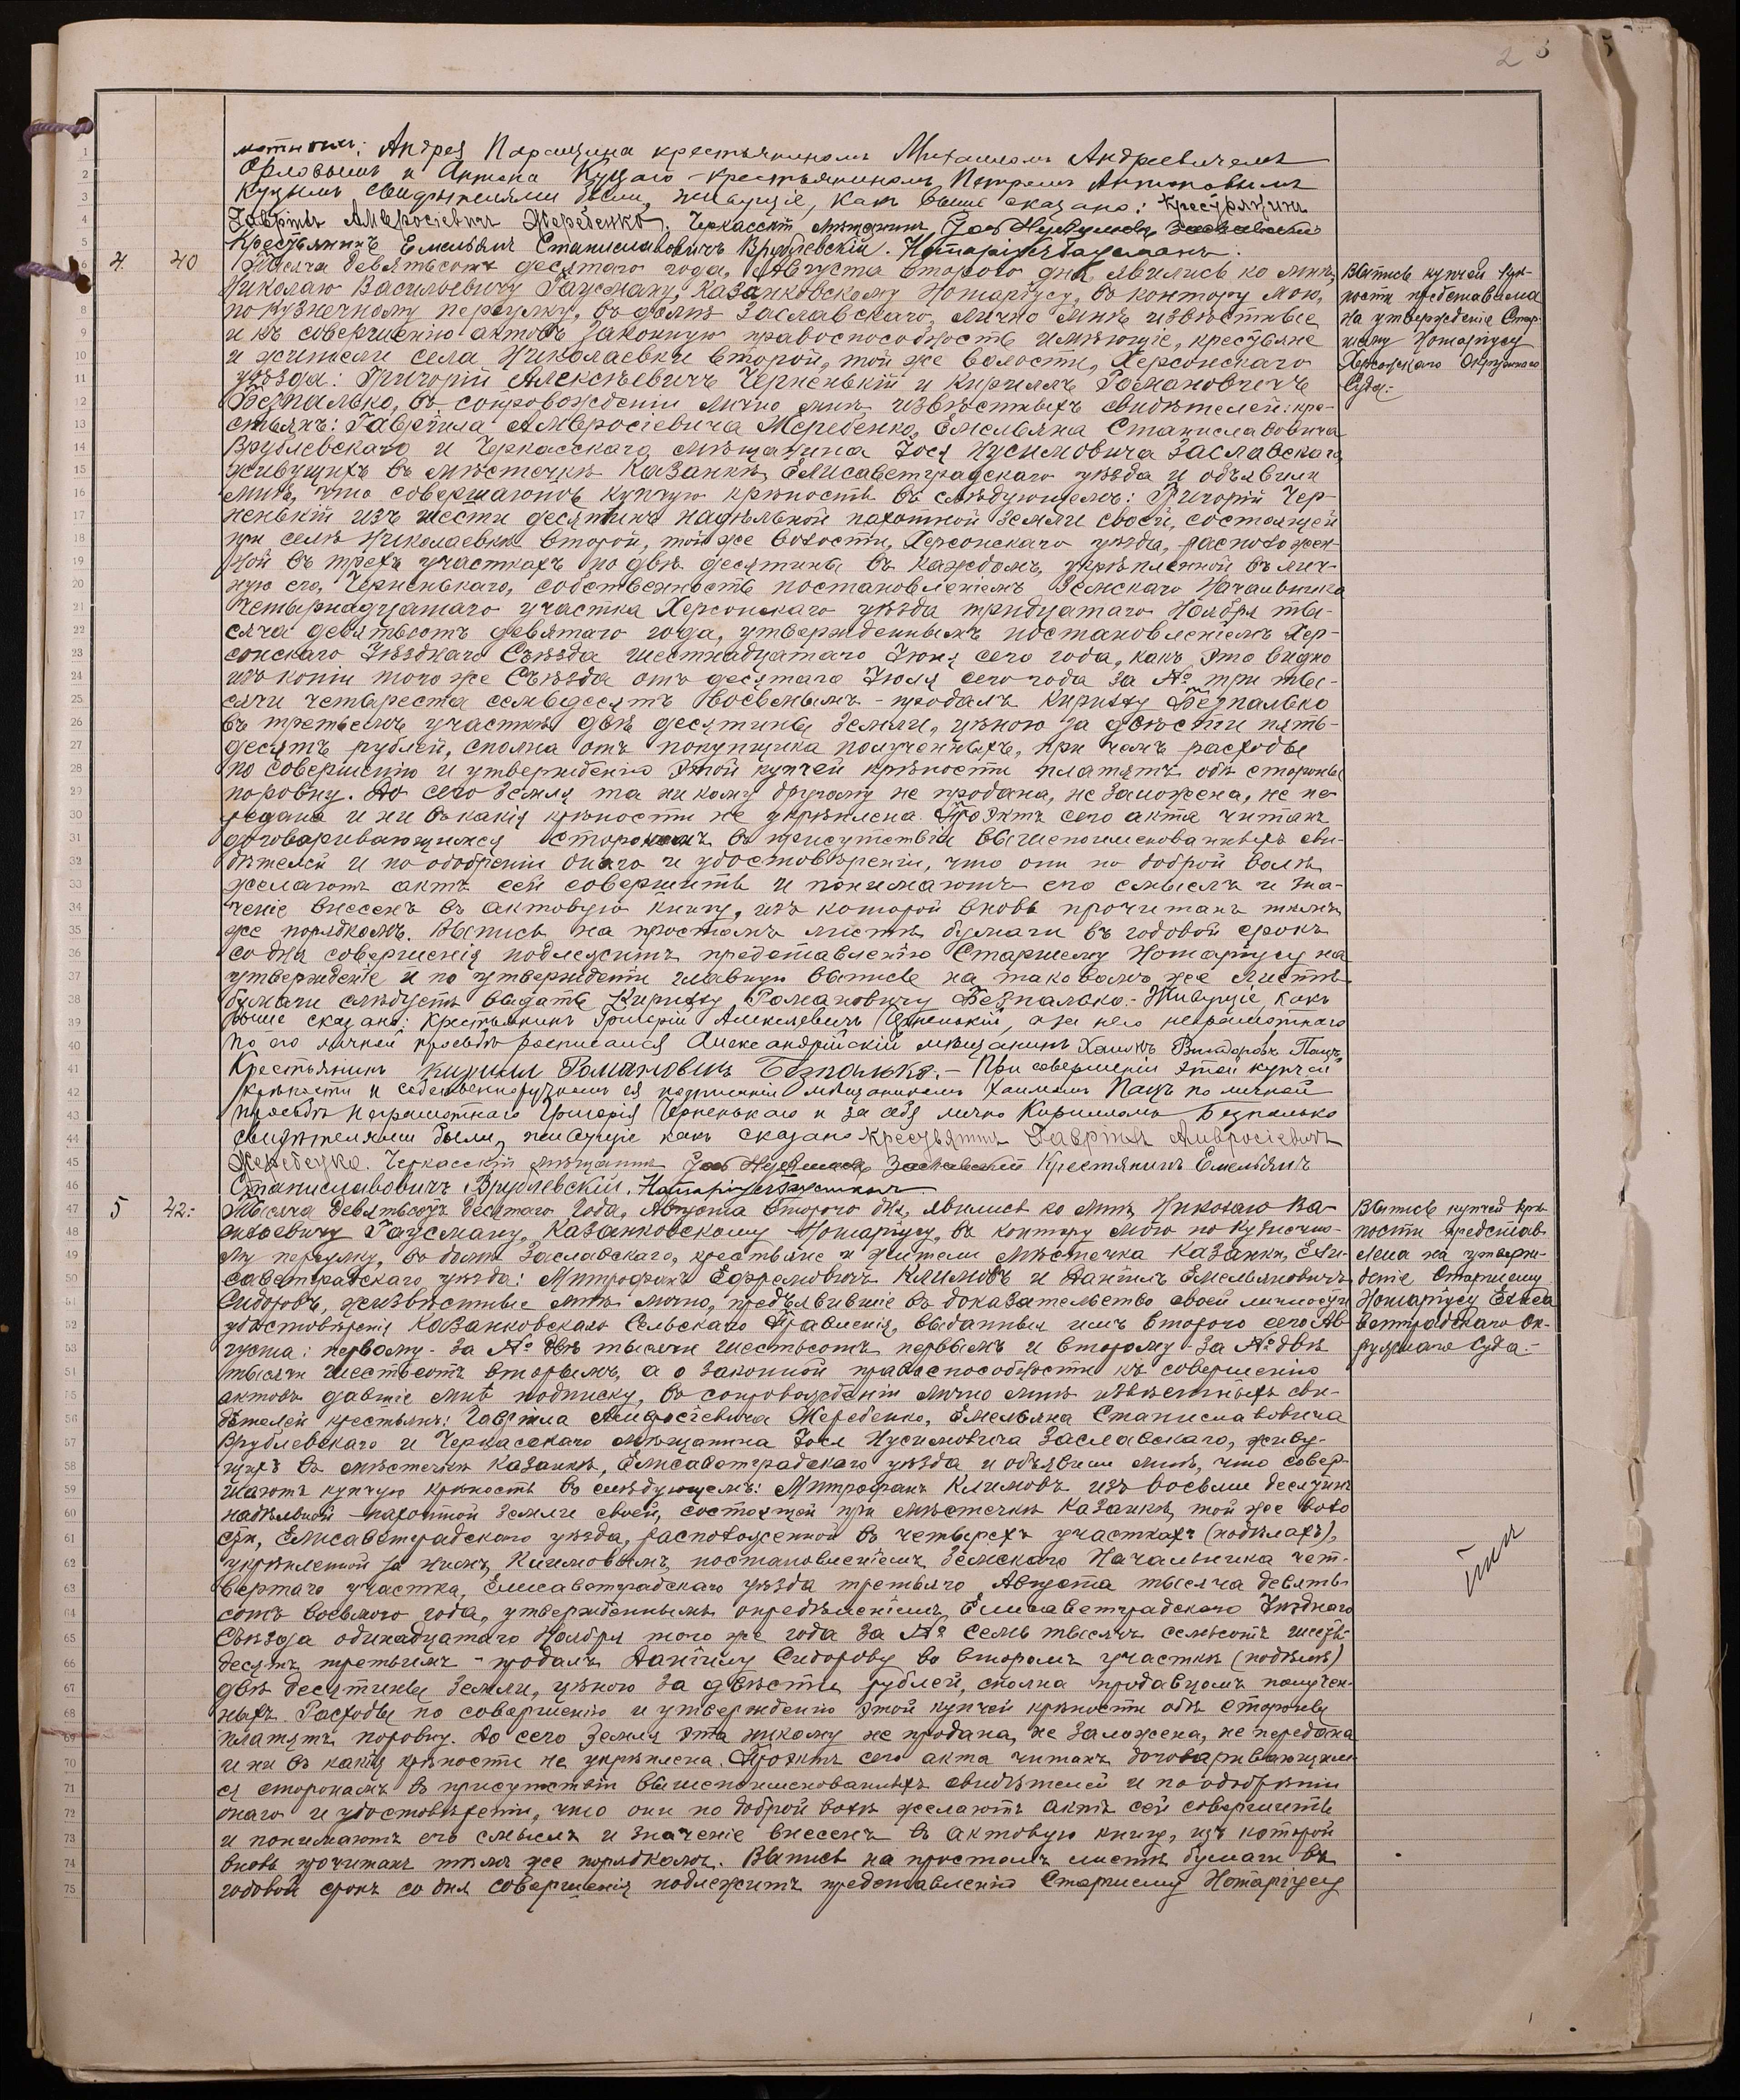 2 3
1 мотныхъ: Андрея Паращина крестьяниномъ Михаиломъ Андреевичемъ
2 Орловымъ и Антона Куцаго - крестьяниномъ Петромъ Антоновымъ
3 Куцымъ свидѣтелями были, живущіе, какъ выше сказано: Крестьянинъ
4 Гавріилъ Амвросіевичъ Жеребенко. Черкасскій мѣщанинъ Іось Нусимовъ Заславскій
5 Крестьянинъ Емельянъ Станиславовичъ Врублевскій. Нотаріусъ Гаусманъ.
6 4. 40 Тысяча девятьсотъ десятаго года, Августа второго дня, явились ко мнѣ,
Николаю Васильевичу Гаусману, Казанковскому Нотаріусу, въ контору мою,
8 по Кузнечному переулку, въ домѣ Заславскаго, лично мнѣ извѣстные
9 и къ совершенію актовъ законную правоспособность имѣющіе, крестьяне
10 и жители села Николаевки второй, той же волости, Херсонскаго
11 уѣзда: Григорій Алексѣевичъ Черненькій и Кириллъ Романовичъ
12 Безпалько, въ сопровожденіи лично мнѣ извѣстныхъ свидѣтелей: кре-
13 стьянъ: Гавріила Амвросіевича Жеребенко, Емельяна Станиславовича
14 Врублевскаго и Черкасскаго мѣщанина Іося Нусимовича Заславскаго,
15 живущихъ въ мѣстечкѣ Казанкѣ, Елисаветградскаго уѣзда и объявили
16 мнѣ, что совершаютъ купчую крѣпость въ слѣдующемъ: Григорій Чер-
17 ненькій изъ шести десятинъ надѣльной пахотной земли своей, состоящей
18 при селѣ Николаевкѣ второй, той же волости, Херсонскаго уѣзда, расположен-
19 ной въ трехъ участкахъ по двѣ десятины въ каждомъ, укрѣпленной въ лич-
20 ную его, Черненькаго, собственность постановленіемъ Земскаго Начальника
21 Четырнадцатаго участка Херсонскаго уѣзда тридцатаго Ноября ты-
22 сяча девятьсотъ девятаго года, утвержденнымъ постановленіемъ Хер-
23 сонскаго Уѣзднаго Съѣзда шестнадцатаго Іюня сего года, какъ это видно
24 изъ копіи того же Съѣзда отъ десятаго Іюля сего года за № три ты-
25 сячи четыреста семьдесятъ восьмымъ - продалъ Кириллу Безпалько
26 въ третьемъ участкѣ двѣ десятины земли, цѣною за двѣсти пять-
27 десятъ рублей, сполна отъ покупщика полученныхъ, при чемъ расходы
28 по совершенію и утвержденію этой купчей крѣпости платятъ обѣ стороны
29 поровну. До сего земля та никому другому не продана, не заложена, не пе-
30 редана и ни въ какія крѣпости не укрѣплена. Проэктъ сего акта читанъ
31 договаривающимся сторонамъ въ присутствіи вышепоименованныхъ сви-
32 дѣтелей и по одобреніи онаго и удостовѣреніи, что они по доброй волѣ
33 желаютъ актъ сей совершить и понимаютъ его смыслъ и зна-
34 ченіе внесенъ въ актовую книгу, изъ которой вновь прочитанъ тѣмъ
35 же порядкомъ. Выпись на простомъ листѣ бумаги въ годовой срокъ
36 со дня совершенія подлежитъ представленію Старшему Нотаріусу на
37 утвержденіе и по утвержденіи главную выпись на таковомъ же листѣ
38 бумаги слѣдуетъ выдать Кириллу Романовичу Безпалько. - Живущіе, какъ
39 выше сказано: Крестьянинъ Григорій Алексѣевичъ Черненькій, а за него неграмотнаго
40 по его личной просьбѣ росписался Александрійскій мѣщанинъ Хаимъ Пацъ.
41 Крестьянинъ Кирилл Романовичъ Безполько. - При совершеніи этой купчей
42 крѣпости и собственноручномъ ея подписаніи мѣщаниномъ Хаимомъ Пацъ по личной
43 просьбѣ неграмотнаго Григорія Черненькаго и за себя лично Кирилломъ Безпалько
44 свидѣтелями были, живущіе какъ сказано Крестьянинъ Гавріилъ Амвросіевичъ
45 Жеребенко. Черкасскій мѣщанинъ Іось Нусимовъ Заславскій Крестянинъ Емельянъ
46 Станиславовичъ Врублевскій. Нотаріусъ Гаусманъ
47 5 42:- Тысяча девятьсотъ десятаго года, Августа второго дня, явились ко мнѣ, Николаю Ва-
48 сильевичу Гаусману, Казанковскому Нотаріусу, въ контору мою по Кузнечно-
49 му переулку, въ домѣ Заславскаго, крестьяне и жители мѣстечка Казанки, Ели-
50 саветградскаго уѣзда: Митрофанъ Ефремовичъ Климовъ и Даніилъ Емельяновичъ
51 Сидоровъ, неизвѣстные мнѣ лично, предъявившіе въ доказательство своей личности
52 удостовѣренія Казанковскаго Сельскаго Правленія, выданныя имъ второго сего Ав-
53 густа: первому - за № двѣ тысячи шестьсотъ первымъ и второму - за № двѣ
тысячи шестьсотъ вторымъ, а о законной правоспособности къ совершенію
55 актовъ давшіе мнѣ подписку, въ сопровожденіи лично мнѣ извѣстныхъ сви-
56 дѣтелей крестьянъ: Гавріила Амвросіевича Жеребенко, Емельяна Станиславовича
57 Врублевскаго и Черкасскаго мѣщанина Іося Нусимовича Заславскаго, живу-
58 щихъ въ мѣстечкѣ Казанкѣ, Елисаветградскаго уѣзда и объявили мнѣ, что совер-
59 шаютъ купчую крѣпость въ слѣдующемъ: Митрофанъ Климовъ изъ восьми десятинъ
60 надѣльной пахотной земли своей, состоящей при мѣстечкѣ Казанкѣ, той же воло
61 сти, Елисаветградскаго уѣзда, расположенной въ четырехъ участкахъ (подѣлахъ),
62 укрѣпленной за нимъ, Климовымъ, постановленіемъ Земскаго Начальника чет-
63 вертаго участка, Елисаветградскаго уѣзда третьяго Августа тысяча девять-
64 сотъ восьмого года, утвержденнымъ опредѣленіемъ Елисаветградскаго Уѣзднаго
65 Съѣзда одинадцатаго Ноября того же года за № семь тысячъ семьсотъ шесть-
66 десятъ третьимъ - продалъ Даніилу Сидорову во второмъ участкѣ (подѣлѣ)
67 двѣ десятины земли, цѣною за двѣсти рублей, сполна продавцомъ получен-
68 ныхъ. Расходы по совершенію и утвержденію этой купчей крѣпости обѣ стороны
69 платятъ поровну. До сего земля эта никому не продана, не заложена, не передана
70 и ни въ какія крѣпости не укрѣплена. Проэктъ сего акта читанъ договаривающим-
71 ся сторонамъ въ присутствіи вышепоименованныхъ свидѣтелей и по одобреніи
72 онаго и удостовѣреніи, что они по доброй волѣ желаютъ актъ сей совершить
73 и понимаютъ его смыслъ и значеніе внесенъ въ актовую книгу, изъ которой
74 вновь прочитанъ тѣмъ же порядкомъ. Выпись на простомъ листѣ бумаги въ
75 годовой срокъ со дня совершенія подлежитъ представленію Старшему Нотаріусу
Выпись купчей крѣ-
пости представлена
на утвержденіе Стар-
шему Нотаріусу
Херсонскаго Окружнаго
Суда:-
Выпись купчей крѣ-
пости представ-
лена на утверж-
деніе Старшему
Нотаріусу Елиса
ветградскаго Ок-
ружнаго Суда.-